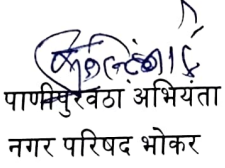 पाणीपुरवठा अभियंता
नगर परिषद भोकर